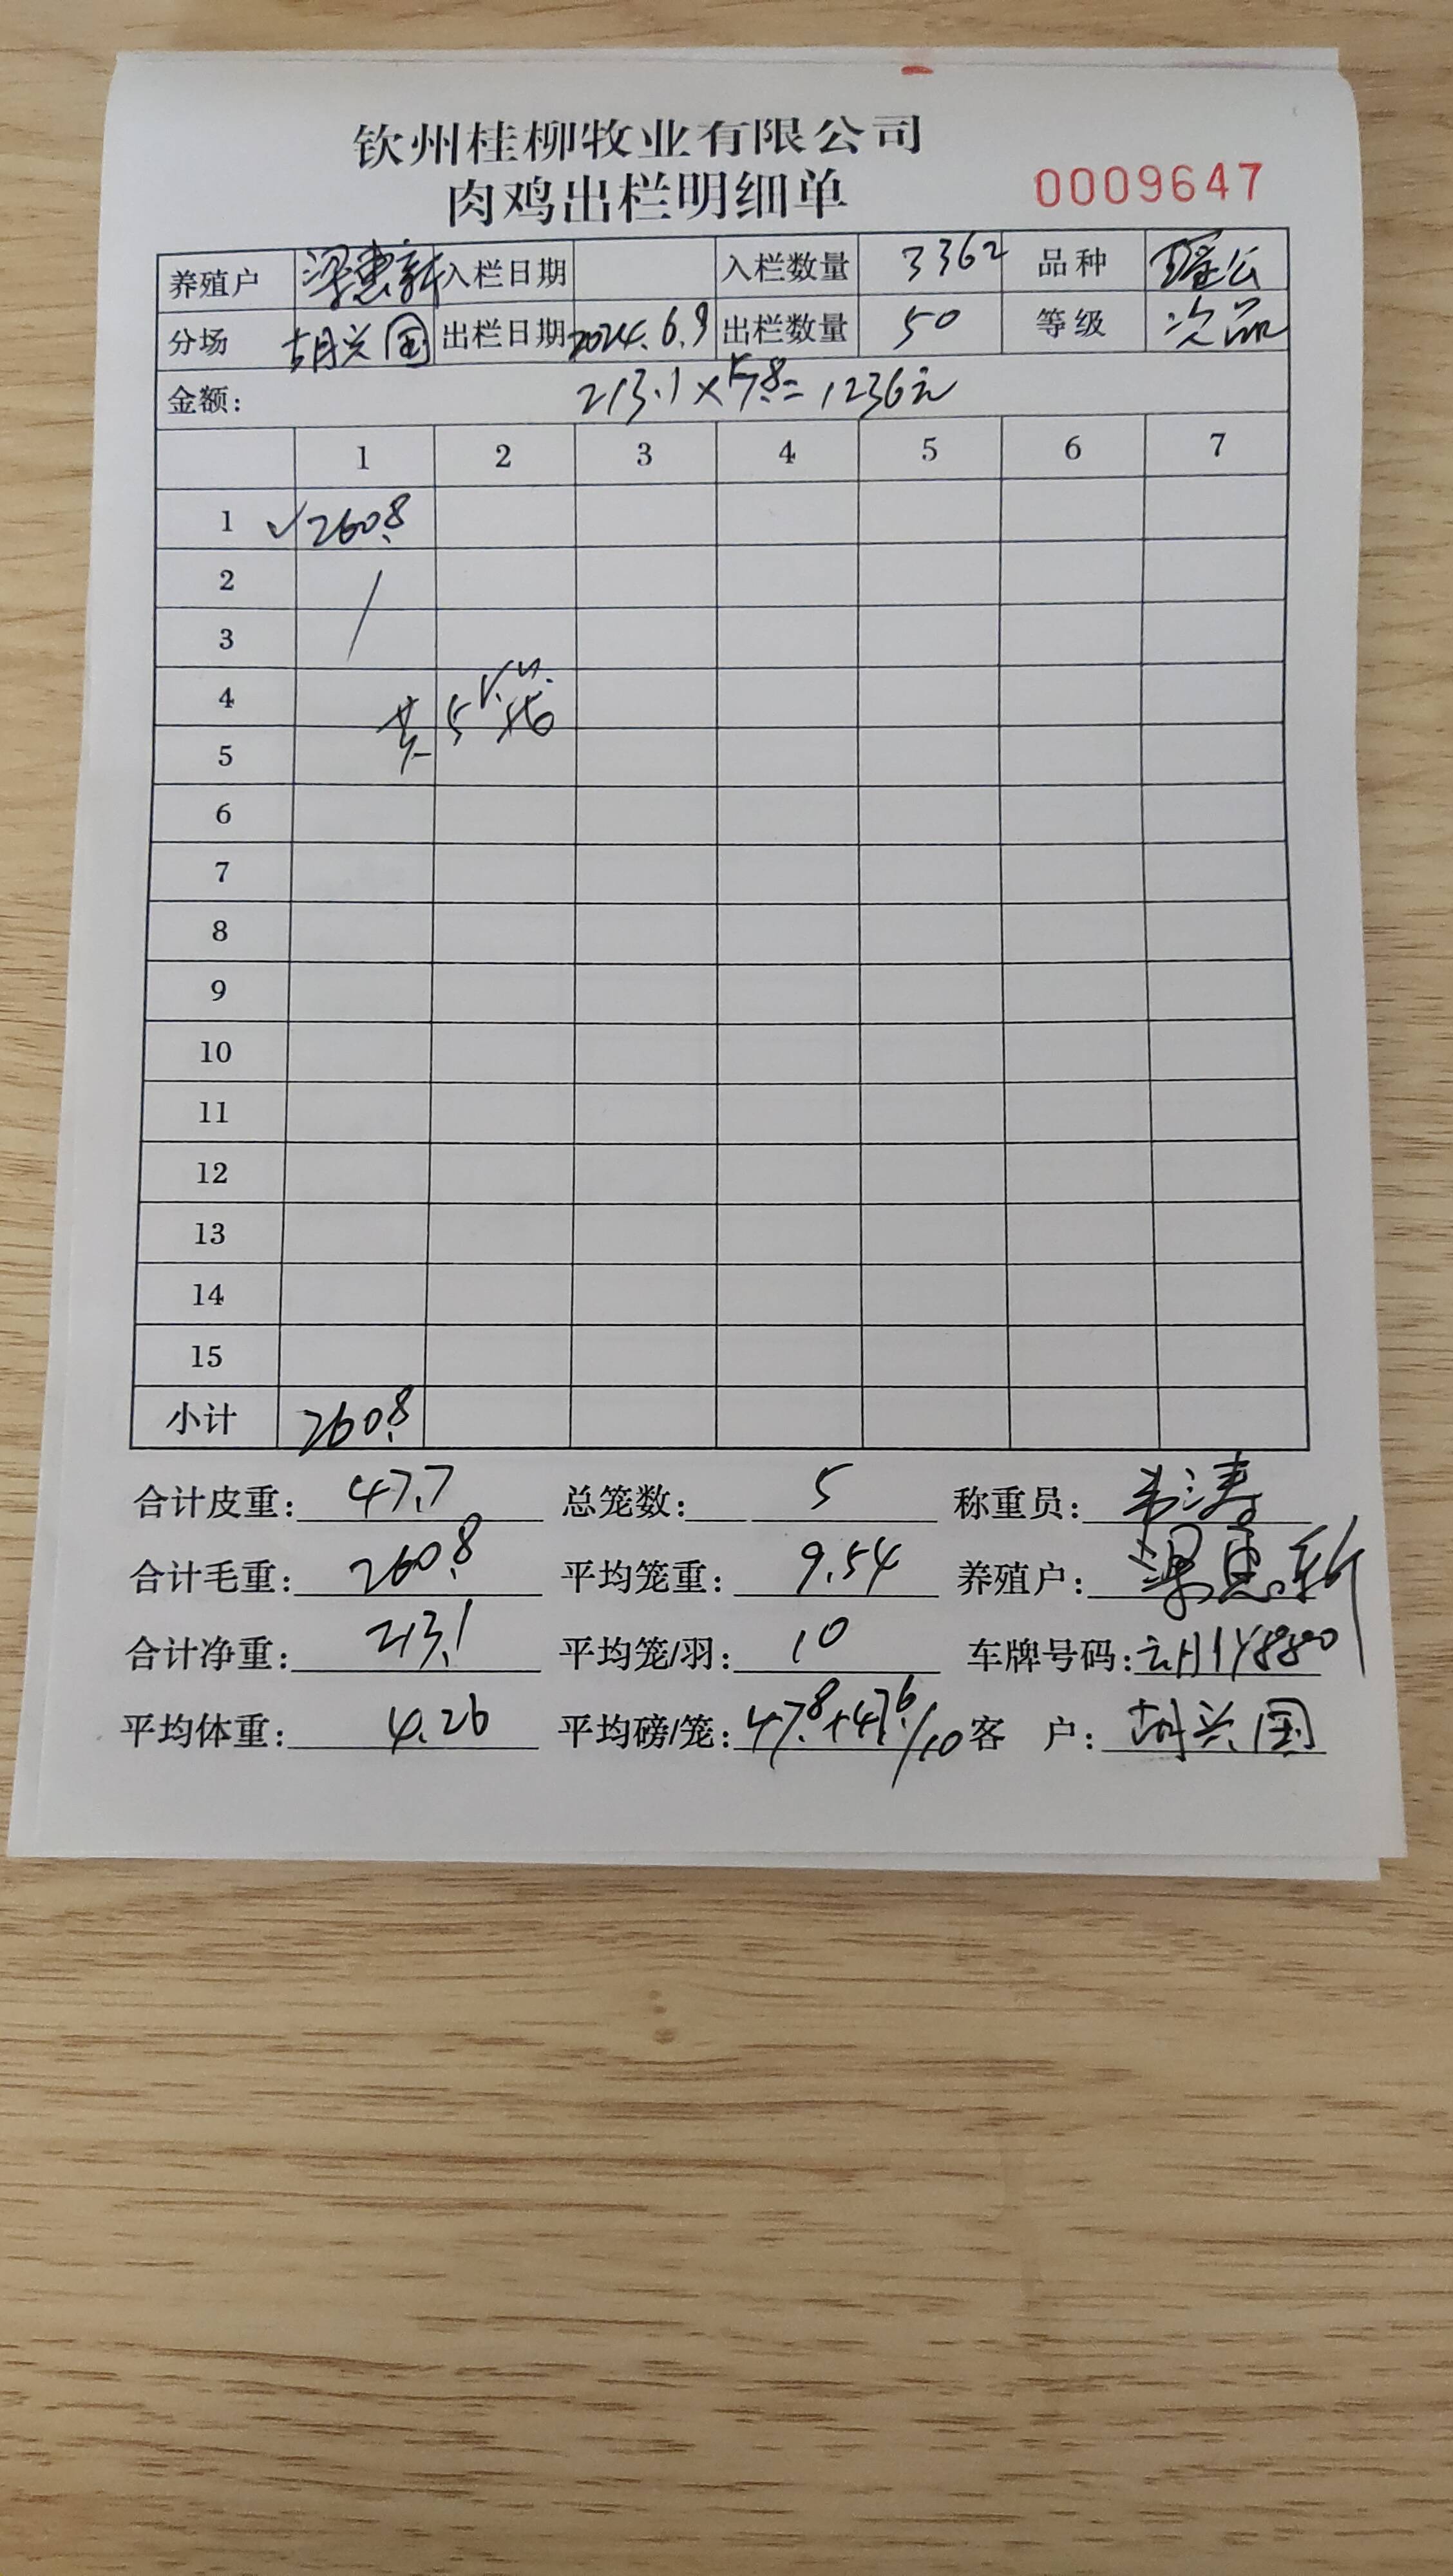 钦州桂柳牧业有限公司
肉鸡出栏明细单 0009647
养殖户 梁惠新 入栏日期 入栏数量 3362 品种
分场 胡兴国 出栏日期 2024.6.9 出栏数量 50 等级 次品
金额: 213.1×5.8=1236元
1 2 3 4 5 6 7
1 ✓260.8
2
3
4
5
6
7
8
9
10
11
12
13
14
15
小计 260.8
合计皮重: 47.7 总笼数: 5 称重员: 韦涛
合计毛重: 260.8 平均笼重: 9.54 养殖户: 梁惠新
合计净重: 213.1 平均笼/羽: 10 车牌号码:
平均体重: 4.26 平均磅/笼: 47.8+47.6/10 客 户: 胡兴国